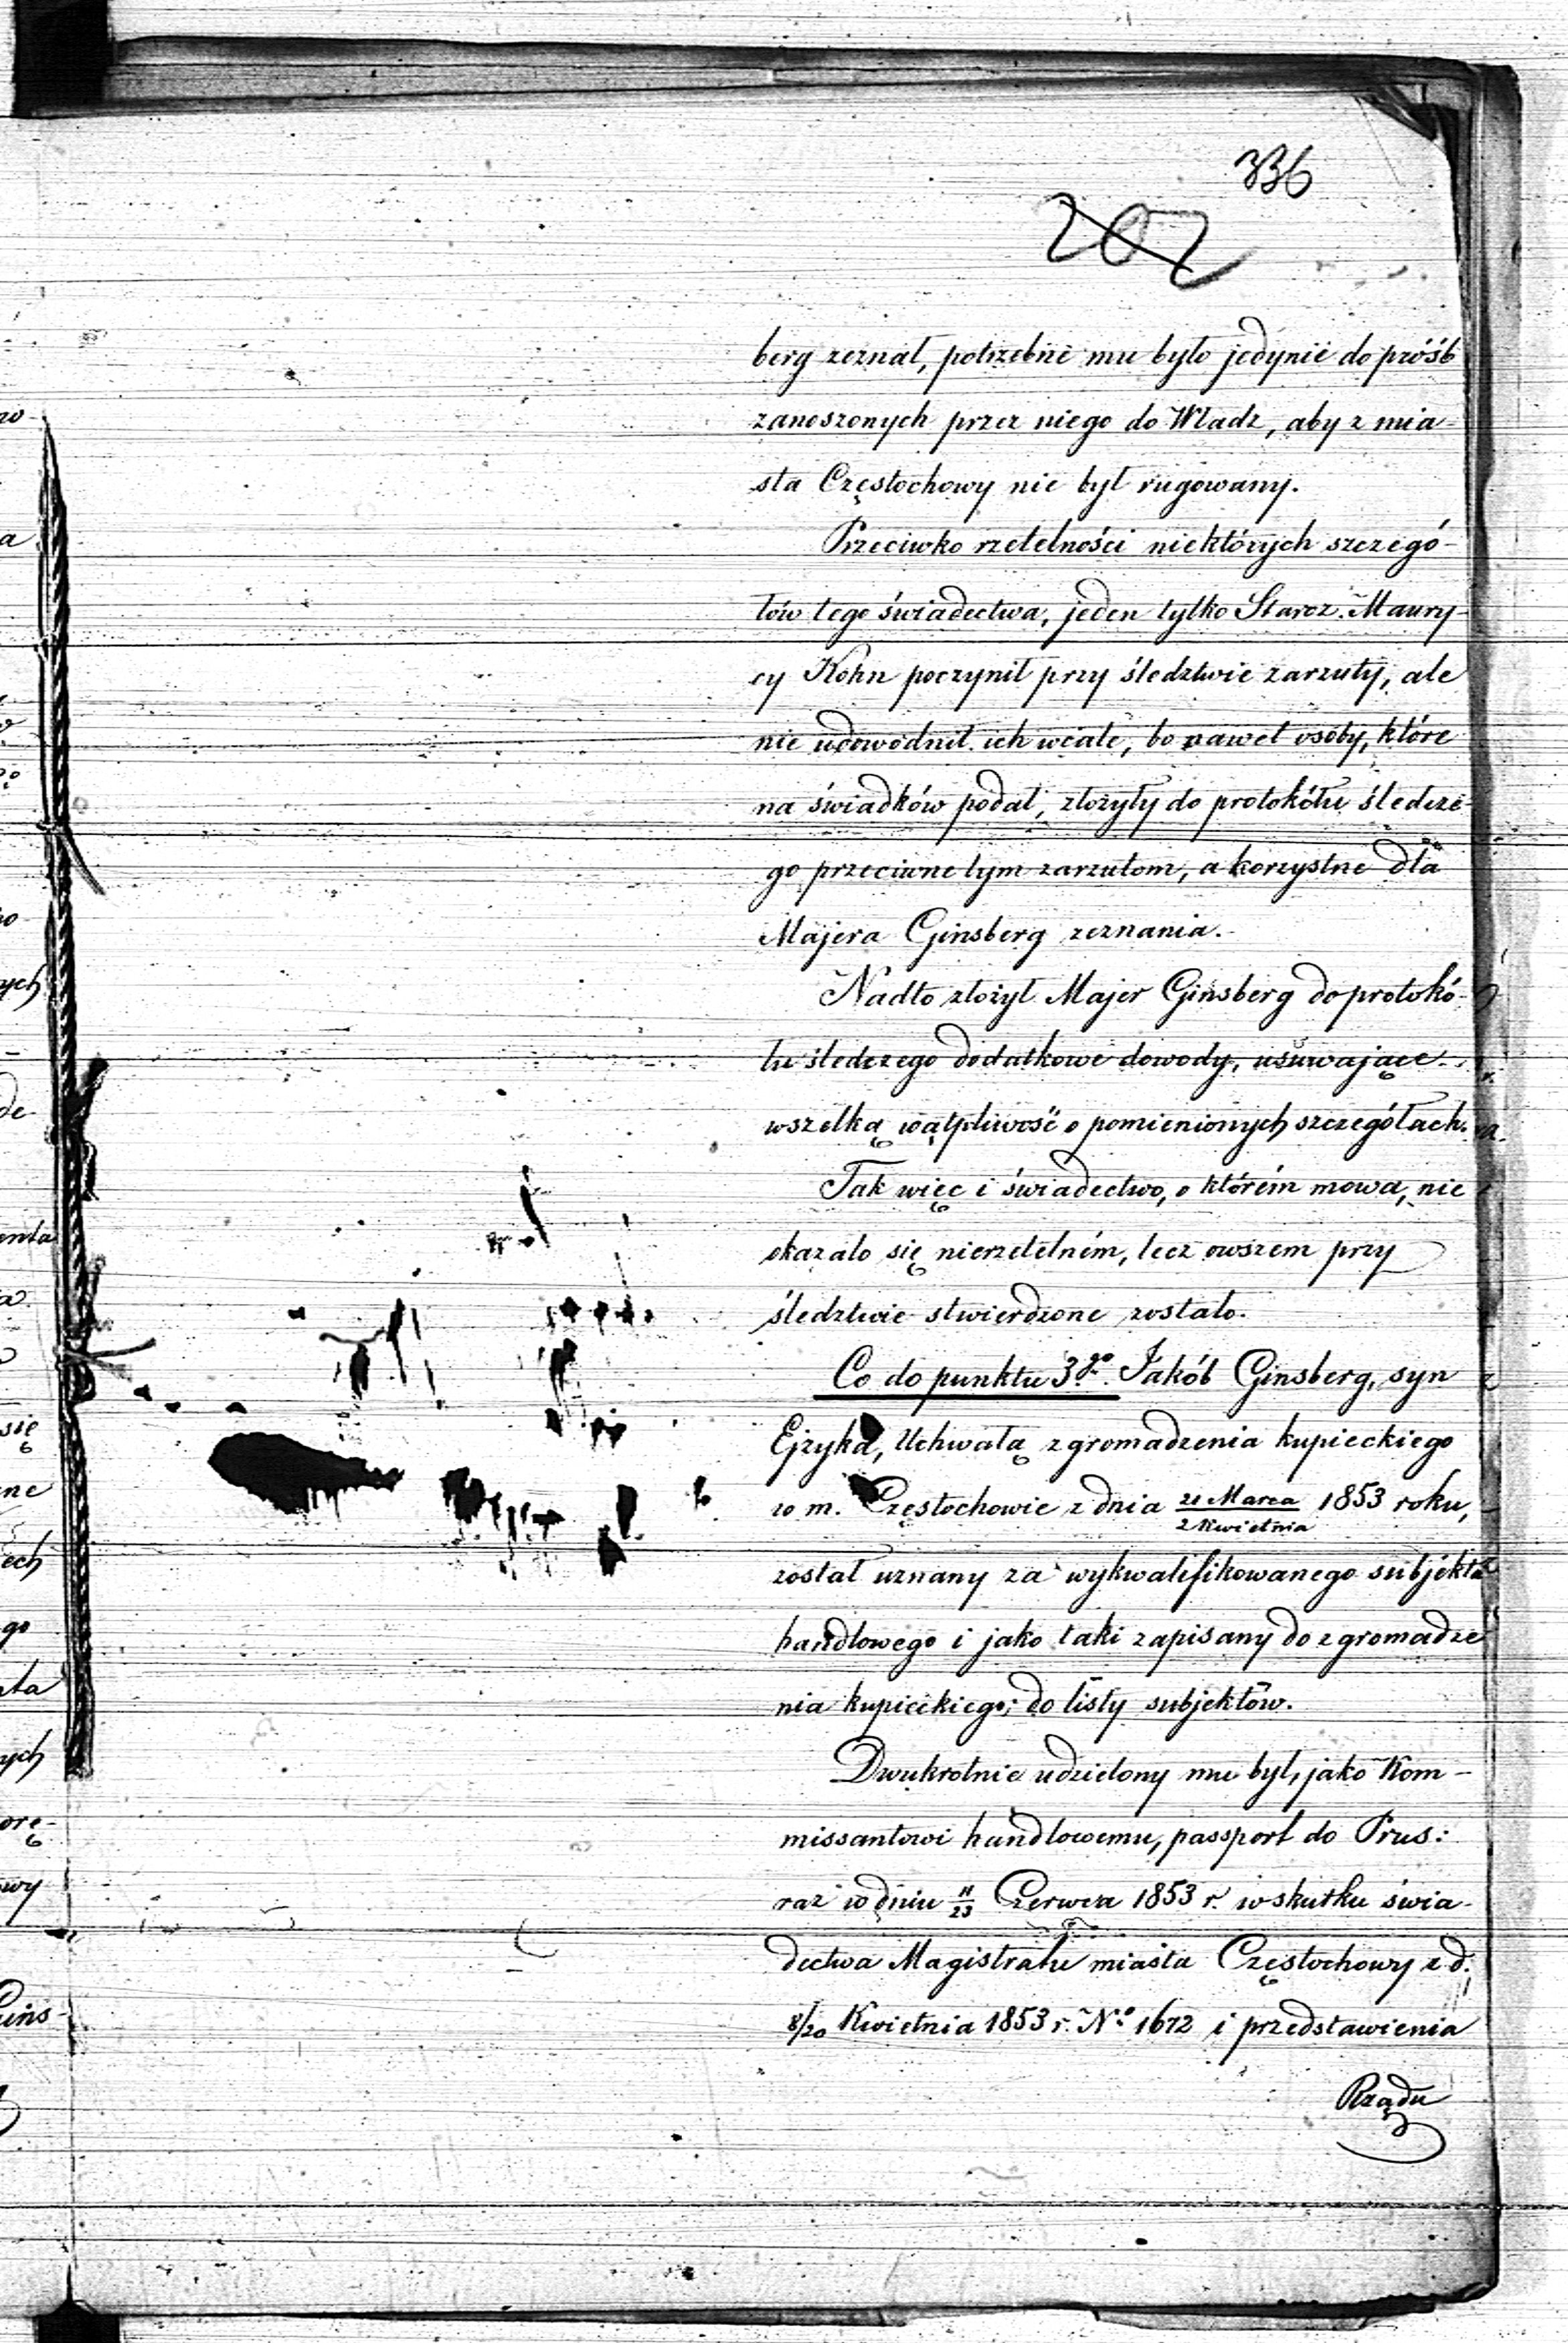 336
202
berg zeznał, potrzebne mu było jedynie do próśb
zanoszonych przez niego do Władz, aby z mia-
sta Częstochowy nie był rugowany.
Przeciwko rzetelności niektórych szczegó-
łów tego świadectwa, jeden tylko Staroz. Maury-
cy Kohn poczynił przy śledztwie zarzuty, ale
nie udowodnił ich wcale, bo nawet osoby, które
na świadków podał, złożyły do protokółu śledcze-
go przeciwne tym zarzutom, a korzystne dla
Majera Ginsberg zeznania.
Nadto złożył Majer Ginsberg do protokó-
łu śledczego dodatkowe dowody, usuwające
wszelką wątpliwość o pomienionych szczegółach.
Tak więc i świadectwo, o którém mowa, nie
okazało się nierzetelném, lecz owszem przy
śledztwie stwierdzone zostało.
Co do punktu 3go. Jakób Ginsberg, syn
Ejzyka, Uchwałą zgromadzenia kupieckiego
w m. Częstochowie z dnia 21 Marca / 2 Kwietnia 1853 roku,
został uznany za wykwalifikowanego subjekta
handlowego i jako taki zapisany do zgromadze
nia kupieckiego; do listy subjektów.
Dwukrotnie udzielony mu był, jako Kom-
missantowi handlowemu, passport do Prus:
raz w dniu 11/23 Czerwca 1853 r. wskutku świa-
dectwa Magistratu miasta Częstochowy z d.
8/20 Kwietnia 1853 r. No 1672 i przedstawienia
Rządu